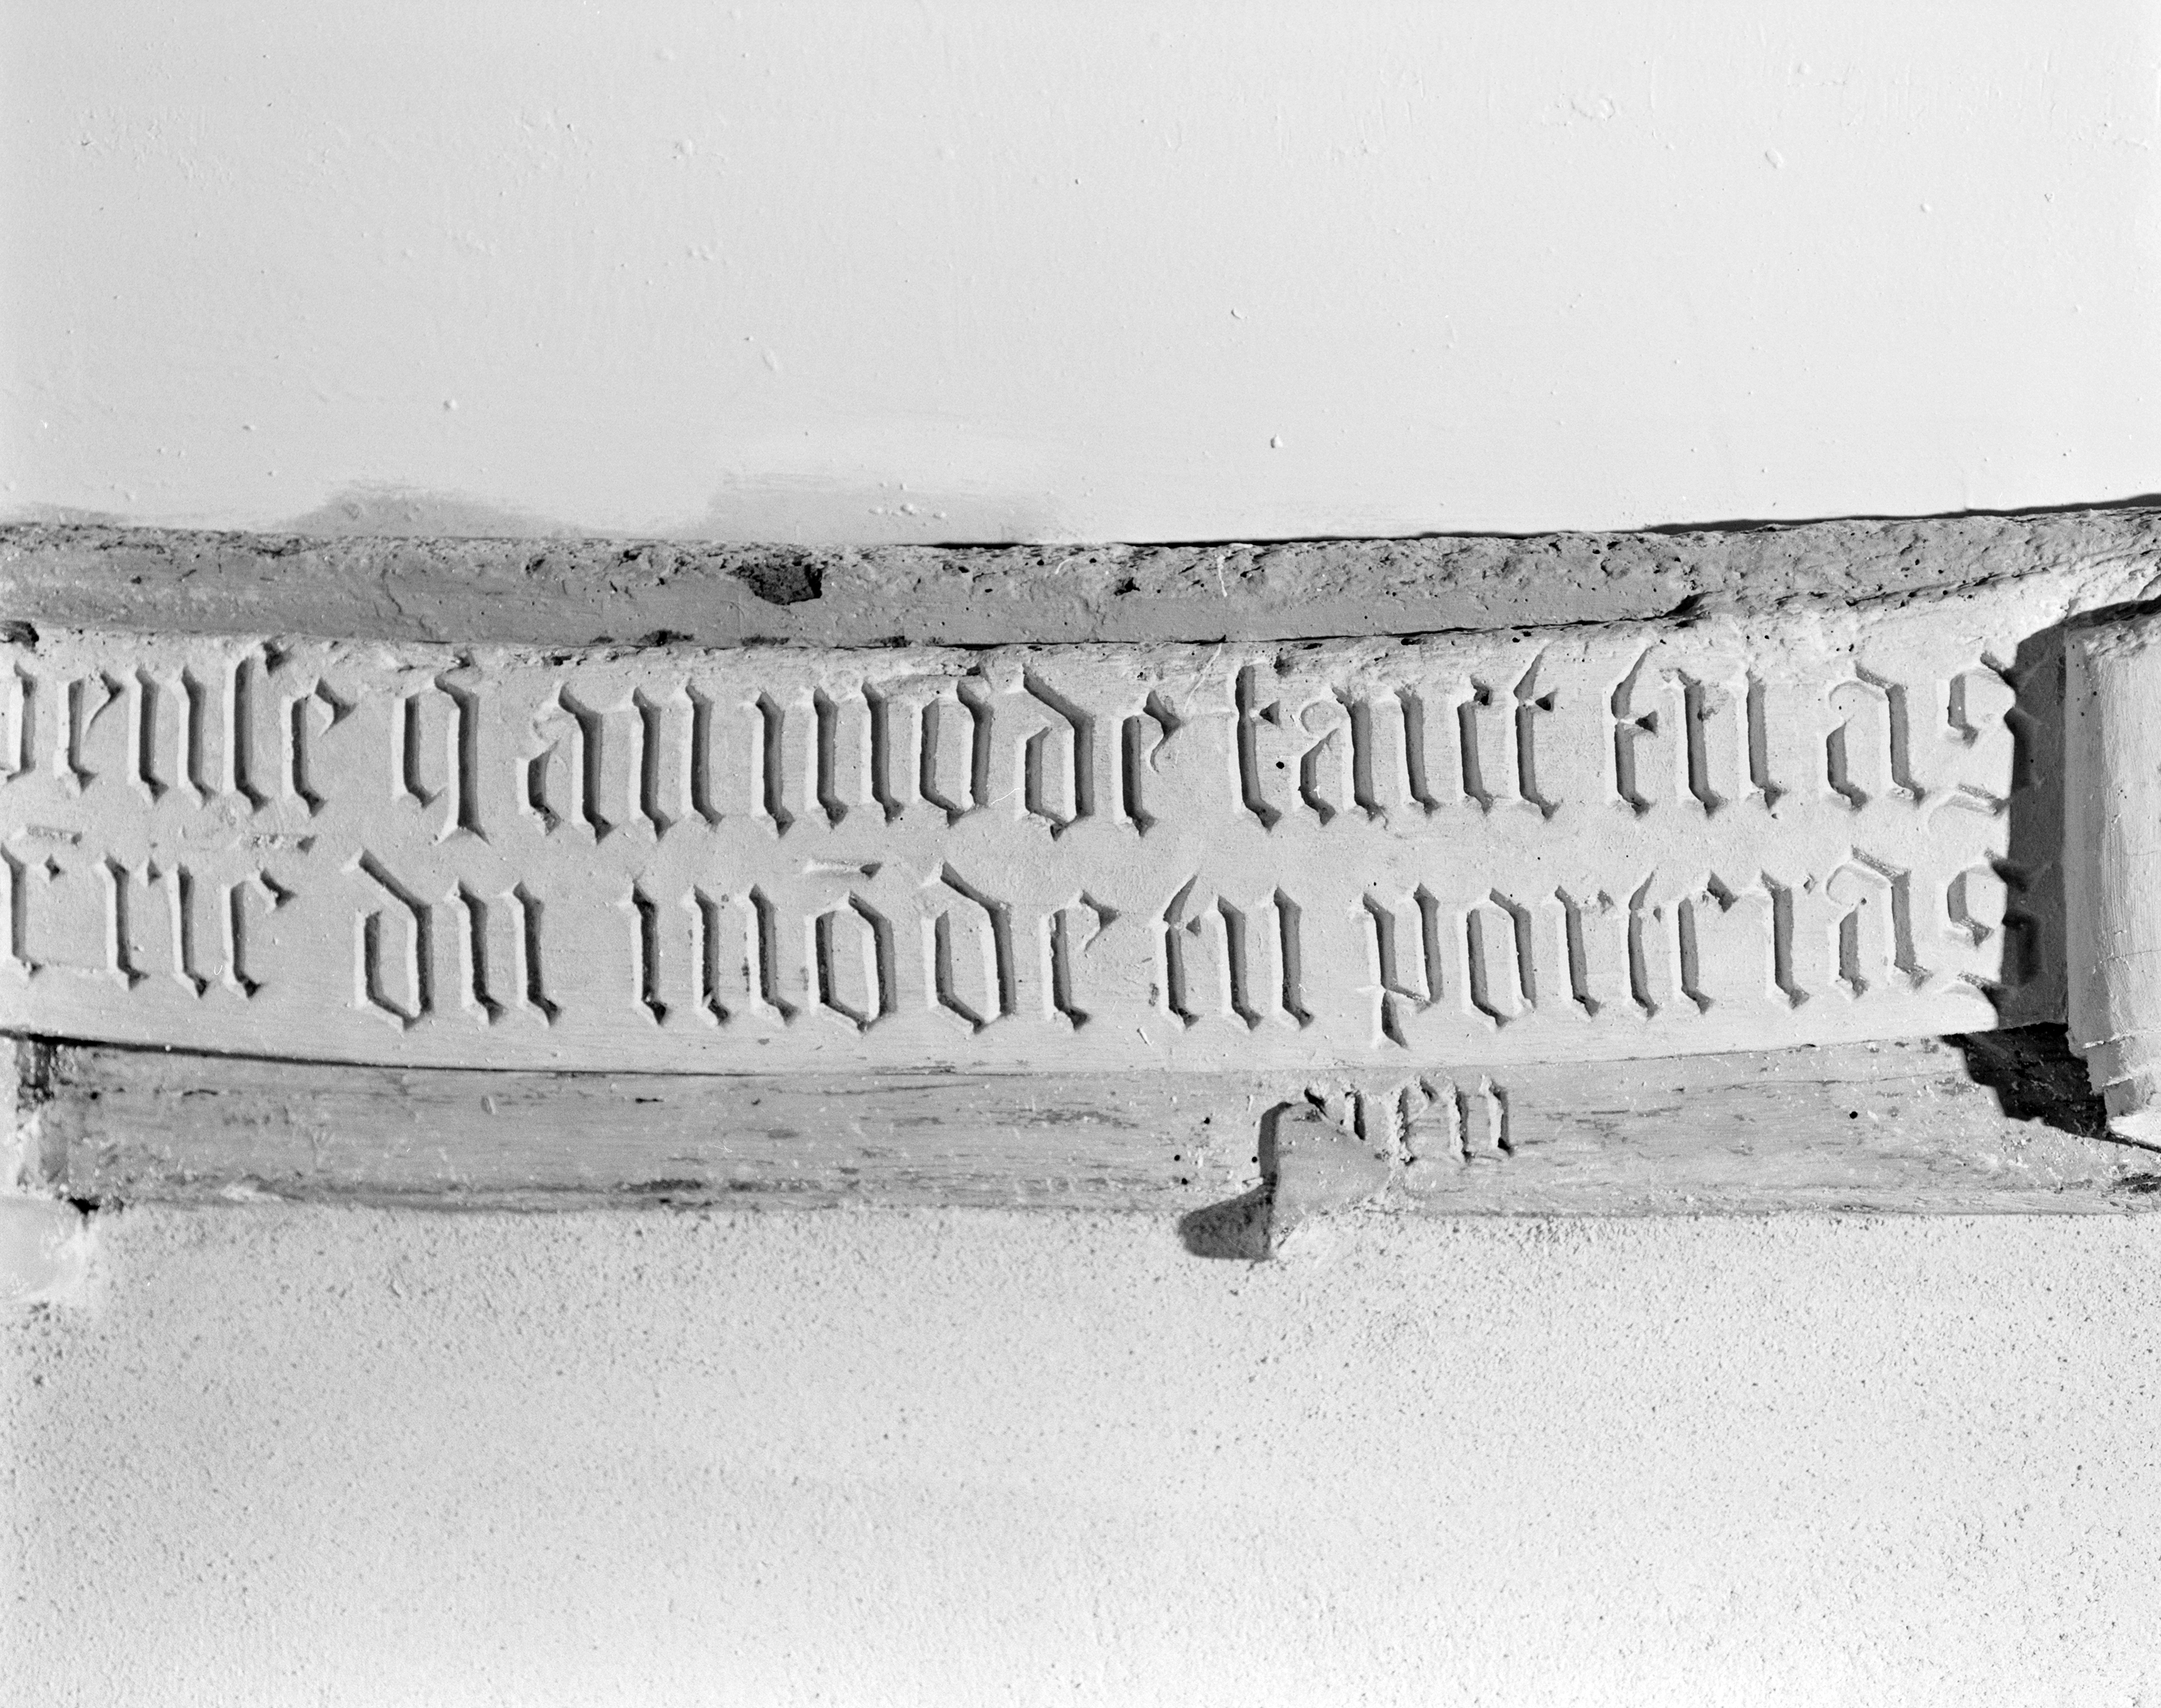 pense q au mode tant tu as
riē du mōde tu porteras
rien